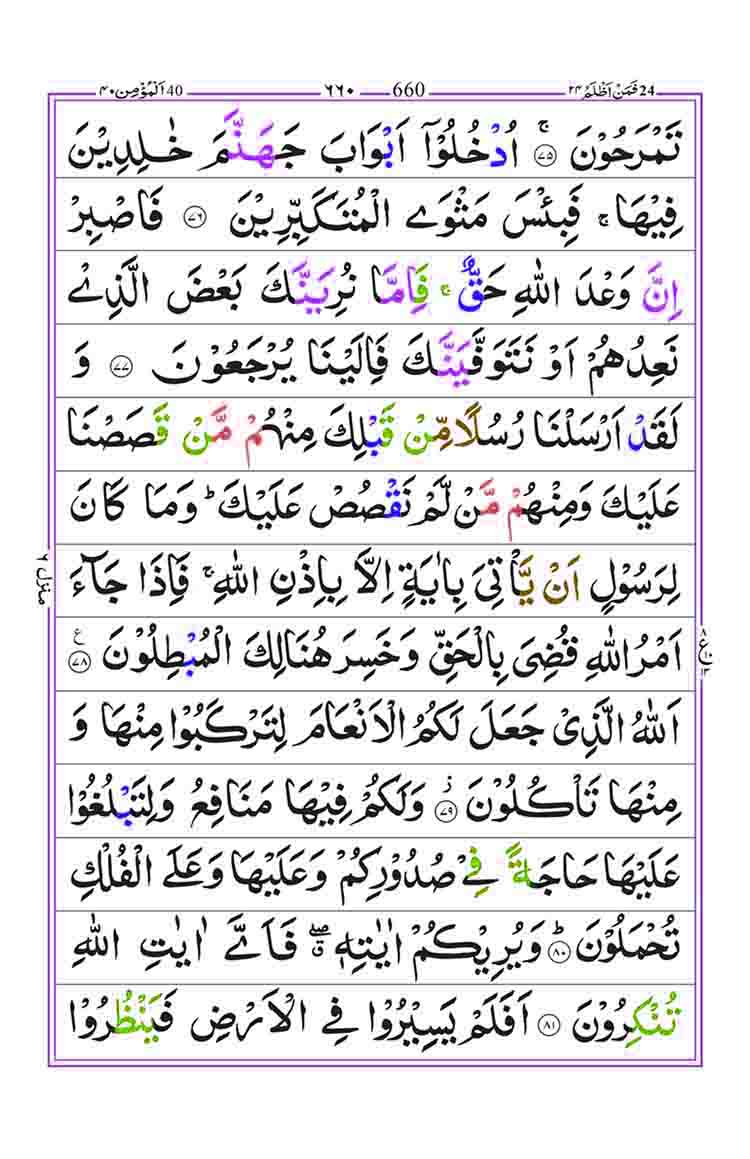 24 فَمَنْ اَظْلَمُ ۲۴ 660 ۶۶۰ 40 اَلْمُؤْمِن ۴۰
تَمْرَحُوْنَ ۚ‏﴿۷۵﴾ اُدْخُلُوْۤا اَبْوَابَ جَهَنَّمَ خٰلِدِيْنَ
فِيْهَا ۚ فَبِئْسَ مَثْوَى الْمُتَكَبِّرِيْنَ ﴿۷۶﴾ فَاصْبِرْ
اِنَّ وَعْدَ اللّٰهِ حَقٌّ ۚ فَاِمَّا نُرِيَنَّكَ بَعْضَ الَّذِىْ
نَعِدُهُمْ اَوْ نَتَوَفَّيَنَّكَ فَاِلَيْنَا يُرْجَعُوْنَ ﴿۷۷﴾ وَ
لَقَدْ اَرْسَلْنَا رُسُلًا مِّنْ قَبْلِكَ مِنْهُمْ مَّنْ قَصَصْنَا
عَلَيْكَ وَمِنْهُمْ مَّنْ لَّمْ نَقْصُصْ عَلَيْكَ ؕ وَمَا كَانَ
لِرَسُوْلٍ اَنْ يَّاْتِىَ بِاٰيَةٍ اِلَّا بِاِذْنِ اللّٰهِ ۚ فَاِذَا جَآءَ
اَمْرُ اللّٰهِ قُضِىَ بِالْحَقِّ وَخَسِرَ هُنَالِكَ الْمُبْطِلُوْنَ ﴿۷۸﴾ ع
اَللّٰهُ الَّذِىْ جَعَلَ لَكُمُ الْاَنْعَامَ لِتَرْكَبُوْا مِنْهَا وَ
مِنْهَا تَاْكُلُوْنَ ؗ ﴿۷۹﴾ وَلَكُمْ فِيْهَا مَنَافِعُ وَلِتَبْلُغُوْا
عَلَيْهَا حَاجَةً فِىْ صُدُوْرِكُمْ وَعَلَيْهَا وَعَلَى الْفُلْكِ
تُحْمَلُوْنَ ؕ ﴿۸۰﴾ وَيُرِيْكُمْ اٰيٰتِهٖ ۖ ق فَاَىَّ اٰيٰتِ اللّٰهِ
تُنْكِرُوْنَ ﴿۸۱﴾ اَفَلَمْ يَسِيْرُوْا فِى الْاَرْضِ فَيَنْظُرُوْا
منزل ۶